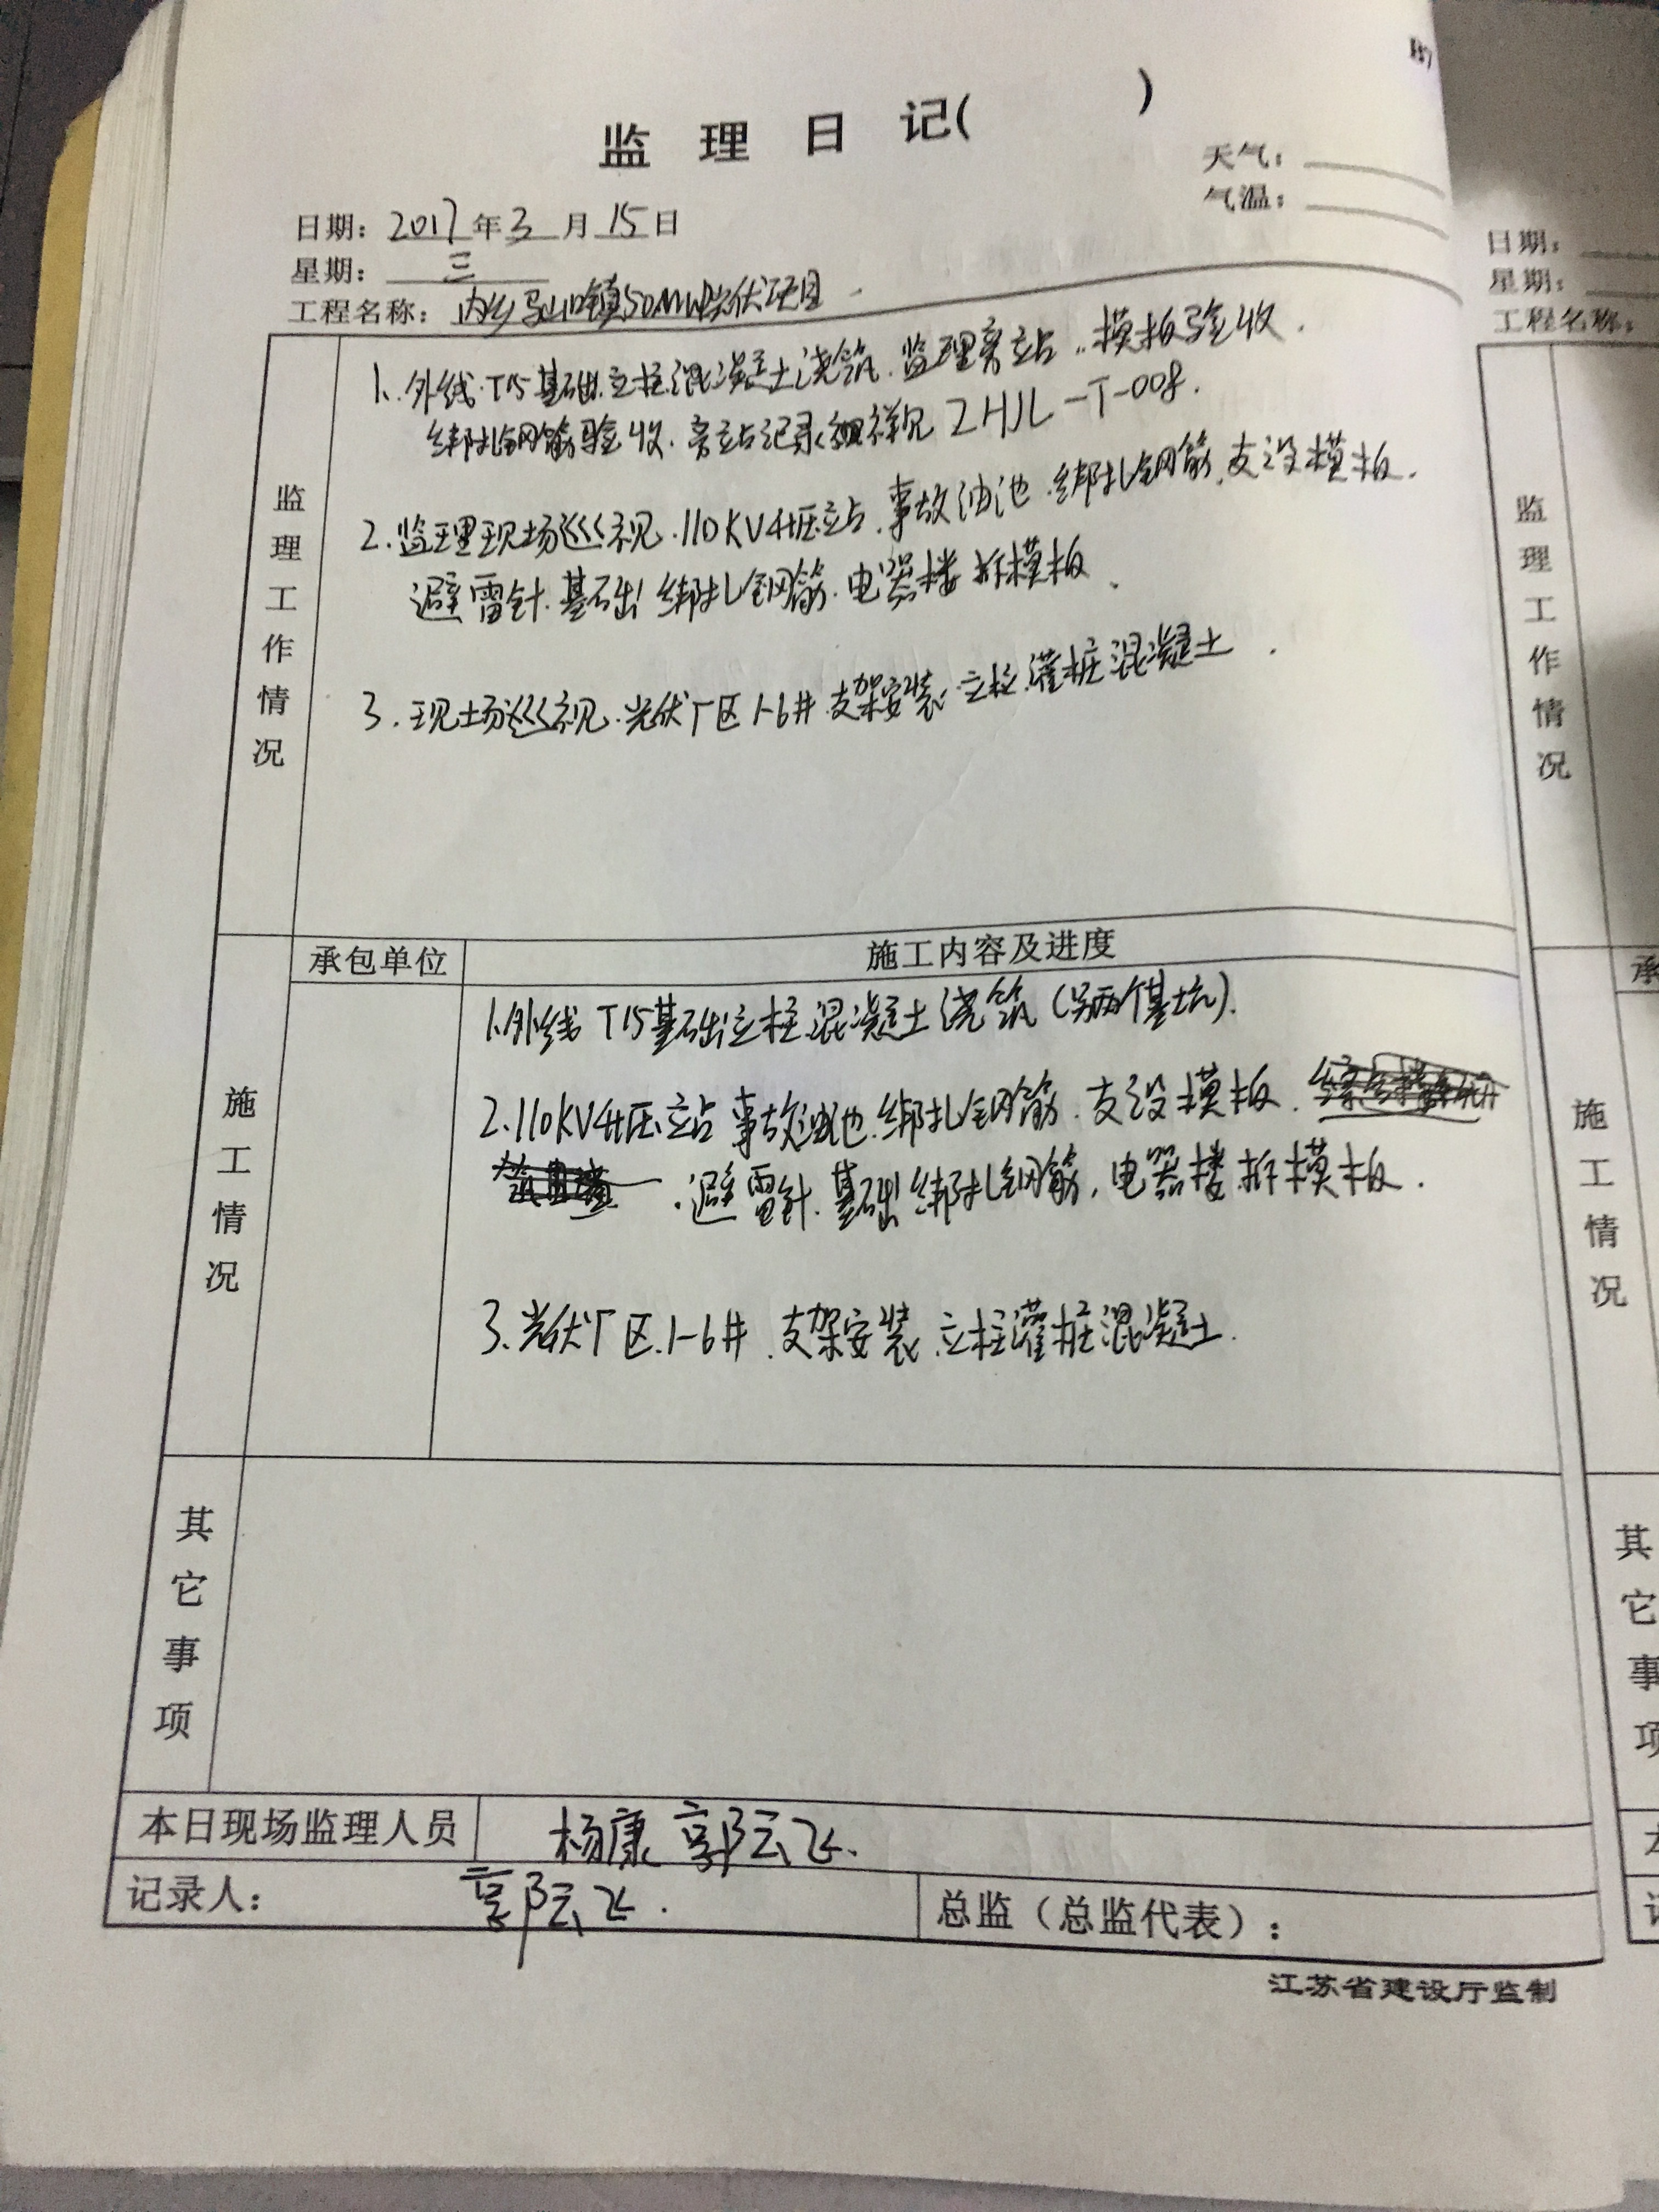 监 理 日 记(          )
天气:
气温:
日期: 2017 年 3 月 15 日
星期: 三
工程名称: 内乡马山口镇50MW光伏项目
监理工作情况
1、外线.T15基础立柱混凝土浇筑.监理旁站..模板验收.
绑扎钢筋验收.旁站记录 详见 ZHJL-T-008.
2.监理现场巡视.110KV升压站.事故油池.绑扎钢筋.支设模板.
避雷针.基础绑扎钢筋.电器楼拆模板.
3.现场巡视.光伏厂区1-6井.支架安装.立柱灌桩混凝土.
施工情况
承包单位 施工内容及进度
1.外线T15基础立柱混凝土浇筑(另两个基坑).
2.110KV升压站事故油池.绑扎钢筋.支设模板.
.避雷针.基础绑扎钢筋.电器楼拆模板.
3.光伏厂区.1-6井.支架安装.立柱灌桩混凝土.
其它事项
本日现场监理人员 杨康 郭云飞.
记录人: 郭云飞.
总监(总监代表):
江苏省建设厅监制
日期:
星期:
工程名称:
监理工作情况
承
施工情况
其它事项